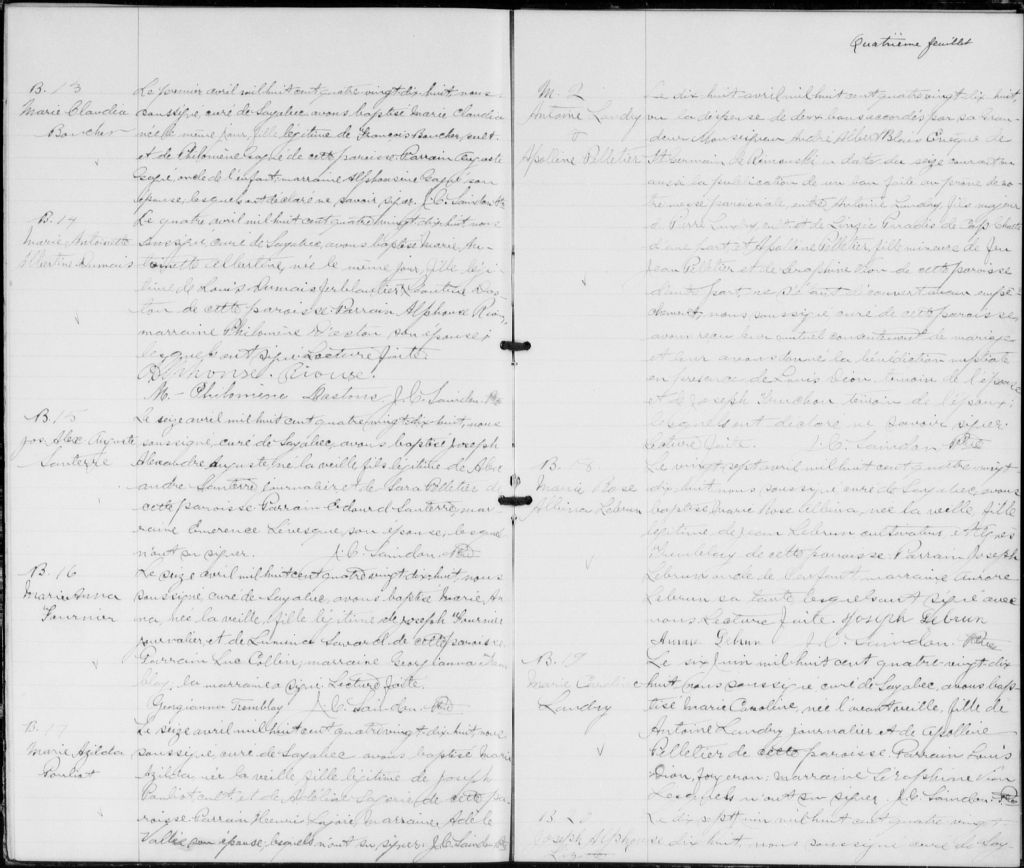 B. 13
Marie Claudia
Boucher
Le premier avril mil huit cent quatre vingt dix huit, nous
soussigné, curé de Sayabec, avons baptisé Marie Claudia
née le même jour, fille légitime de François Boucher, cult.
et de Philomène Gagné de cette paroisse. Parrain Auguste
Gagné, oncle de l'enfant, marraine Alphonsine Gagné son
épouse, lesquels ont déclaré ne savoir signer. J. C. Saindon Ptre
B. 14
Marie Antoinette
Albertine Dumais
Le quatre avril mil huit cent quatre vingt dix huit nous
soussigné curé de Sayabec, avons baptisé Marie, An-
toinette Albertine, née le même jour, fille légi-
time de Louis Dumais ferblantier
de cette paroisse. Parrain Alphonse Rioux,
marraine Philomène Daston son épouse;
lesquels ont signé. Lecture faite.
Alphonse. Rioux.
M. Philomène Dastous J. C. Saindon. Ptre
B. 15
Jos. Alex. Auguste
Santerre
Le seize avril mil huit cent quatre vingt dix huit, nous
soussigné, curé de Sayabec, avons baptisé Joseph
Alexandre Auguste, né la veille, fils légitime de Alex-
andre Santerre journalier et de Sara Pelletier de
cette paroisse. Parrain Edouard Santerre, mar-
raine Emerence Levesque, son épouse, lesquels
n'ont su signer. J. C. Saindon. Ptre
B. 16
Marie Anna
Fournier
Le seize avril mil huit cent quatre vingt dix huit, nous
soussigné curé de Sayabec, avons baptisé Marie, An-
na, née la veille, fille légitime de Joseph Fournier
journalier et de Luminia Savard de cette paroisse
Parrain Luc Collin, marraine Georgianna Trem-
blay, la marraine a signé. Lecture faite.
Georgianna Tremblay J. C. Saindon. Ptre
B. 17
Marie Azilda
Pouliot
Le seize avril mil huit cent quatre vingt dix huit, nous
soussigné, curé de Sayabec avons baptisé Marie
Azilda née la veille fille légitime de Joseph
Pouliot cult. et de Adeline Lajoie de cette pa-
roisse Parrain Heenri Lajoie, marraine, Adèle
Vallée son épouse, lesquels n'ont su signer. J. C. Saindon Ptre
Quatrième feuillet
M. 2
Antoine Landry
&
Apolline Pelletier
Le dix huit avril mil huit cent quatre vingt dix huit,
vu la dispense de deux bans accordés par sa Gran-
deur Monseigneur André Albert Blais Evêque de
St Germain de Rimouski en date du seize courant vu
aussi la publication de un ban faite au prône de no-
tre messe paroissiale, entre Antoine Landry, fils majeur
de Pierre Landry, cult. et de Paradis de
d'une part, et Apolline Pelletier, fille mineure de feu
Jean Pelletier et de Séraphine Dion de cette paroisse
d'autre part, ne s'étant découvert aucun empê-
chement, nous soussigné curé de cette paroisse,
avons reçu leur mutuel consentement de mariage
et leur avons donné la bénédiction nuptiale
en présence de Louis Dion, témoin de l'épouse
et de Joseph témoin de l'époux;
lesquels ont déclaré ne savoir signer
Lecture faite. J. C. Saindon Ptre
B. 18
Marie Rose
Albina Lebrun
Le vingt sept avril mil huit cent quatre vingt
dix huit, nous soussigné curé de Sayabec, avons
baptisé Marie Rose Albina, née la veille fille
légitime, de Jean Lebrun cultivateur et Agnès
Tremblay de cette paroisse. Parrain Joseph
Lebrun oncle de l'enfant, marraine Aurore
Lebrun sa tante lesquels ont signé avec
nous. Lecture faite. Joseph Lebrun
Aurore Lebrun J. C. Saindon. Ptre
B. 19
Marie Caroline
Landry
Le six Juin mil huit cent quatre-vingt dix
huit, nous soussigné curé de Sayabec, avons bap-
tisé Marie Caroline, née l'avant veille, fille de
Antoine Landry journalier et de Apolline
Pelletier de cette paroisse. Parrain Louis
Dion, forgeron; marraine Séraphine Dion
Lesquels n'ont su signer. J. C. Saindon. Ptre
B. 20
Joseph Alphonse
Le dix sept juin mil huit cent quatre vingt-
dix huit, nous soussigné curé de Say-